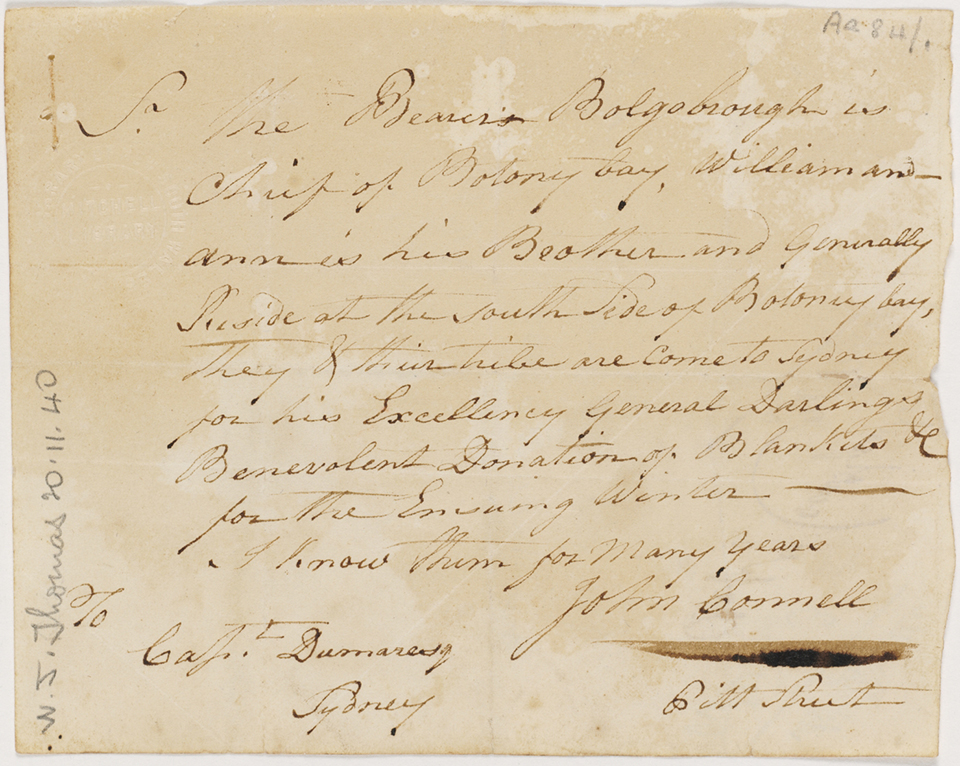 Ae 84/.
Sr. The Bearer Bolgobrough is
Chief of Botony bay, William and
ann is his Brother and Generally
Reside at the South Side of Botony bay,
they & their tribe are Come to Sydney
for his Excellency General Darlings
Benevolent Donation of Blankets &c
for the Ensuing Winter
I Know them for Many Years
John Connell
To
Capt. Dumaresq
Sydney
Pitt Street
W. J. Thomas 20.11.40